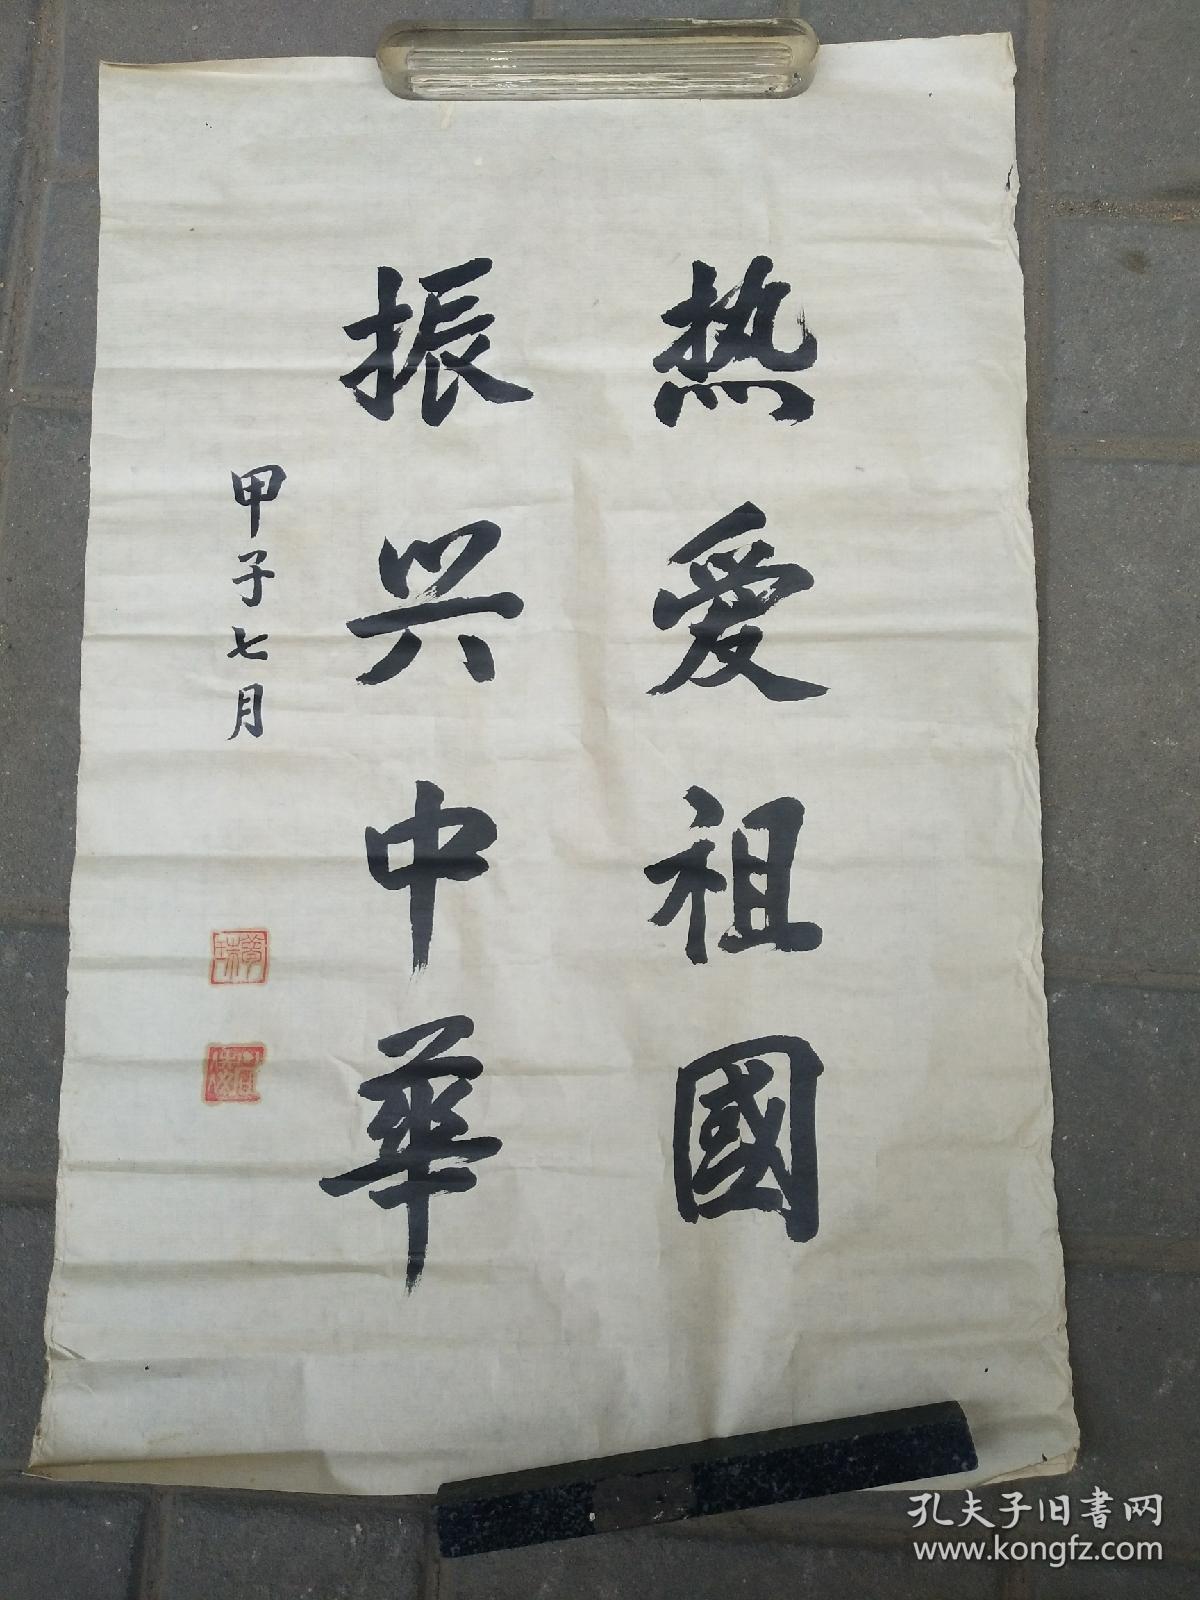 热爱祖國
振兴中華
甲子七月
孔夫子旧書网
www.kongfz.com